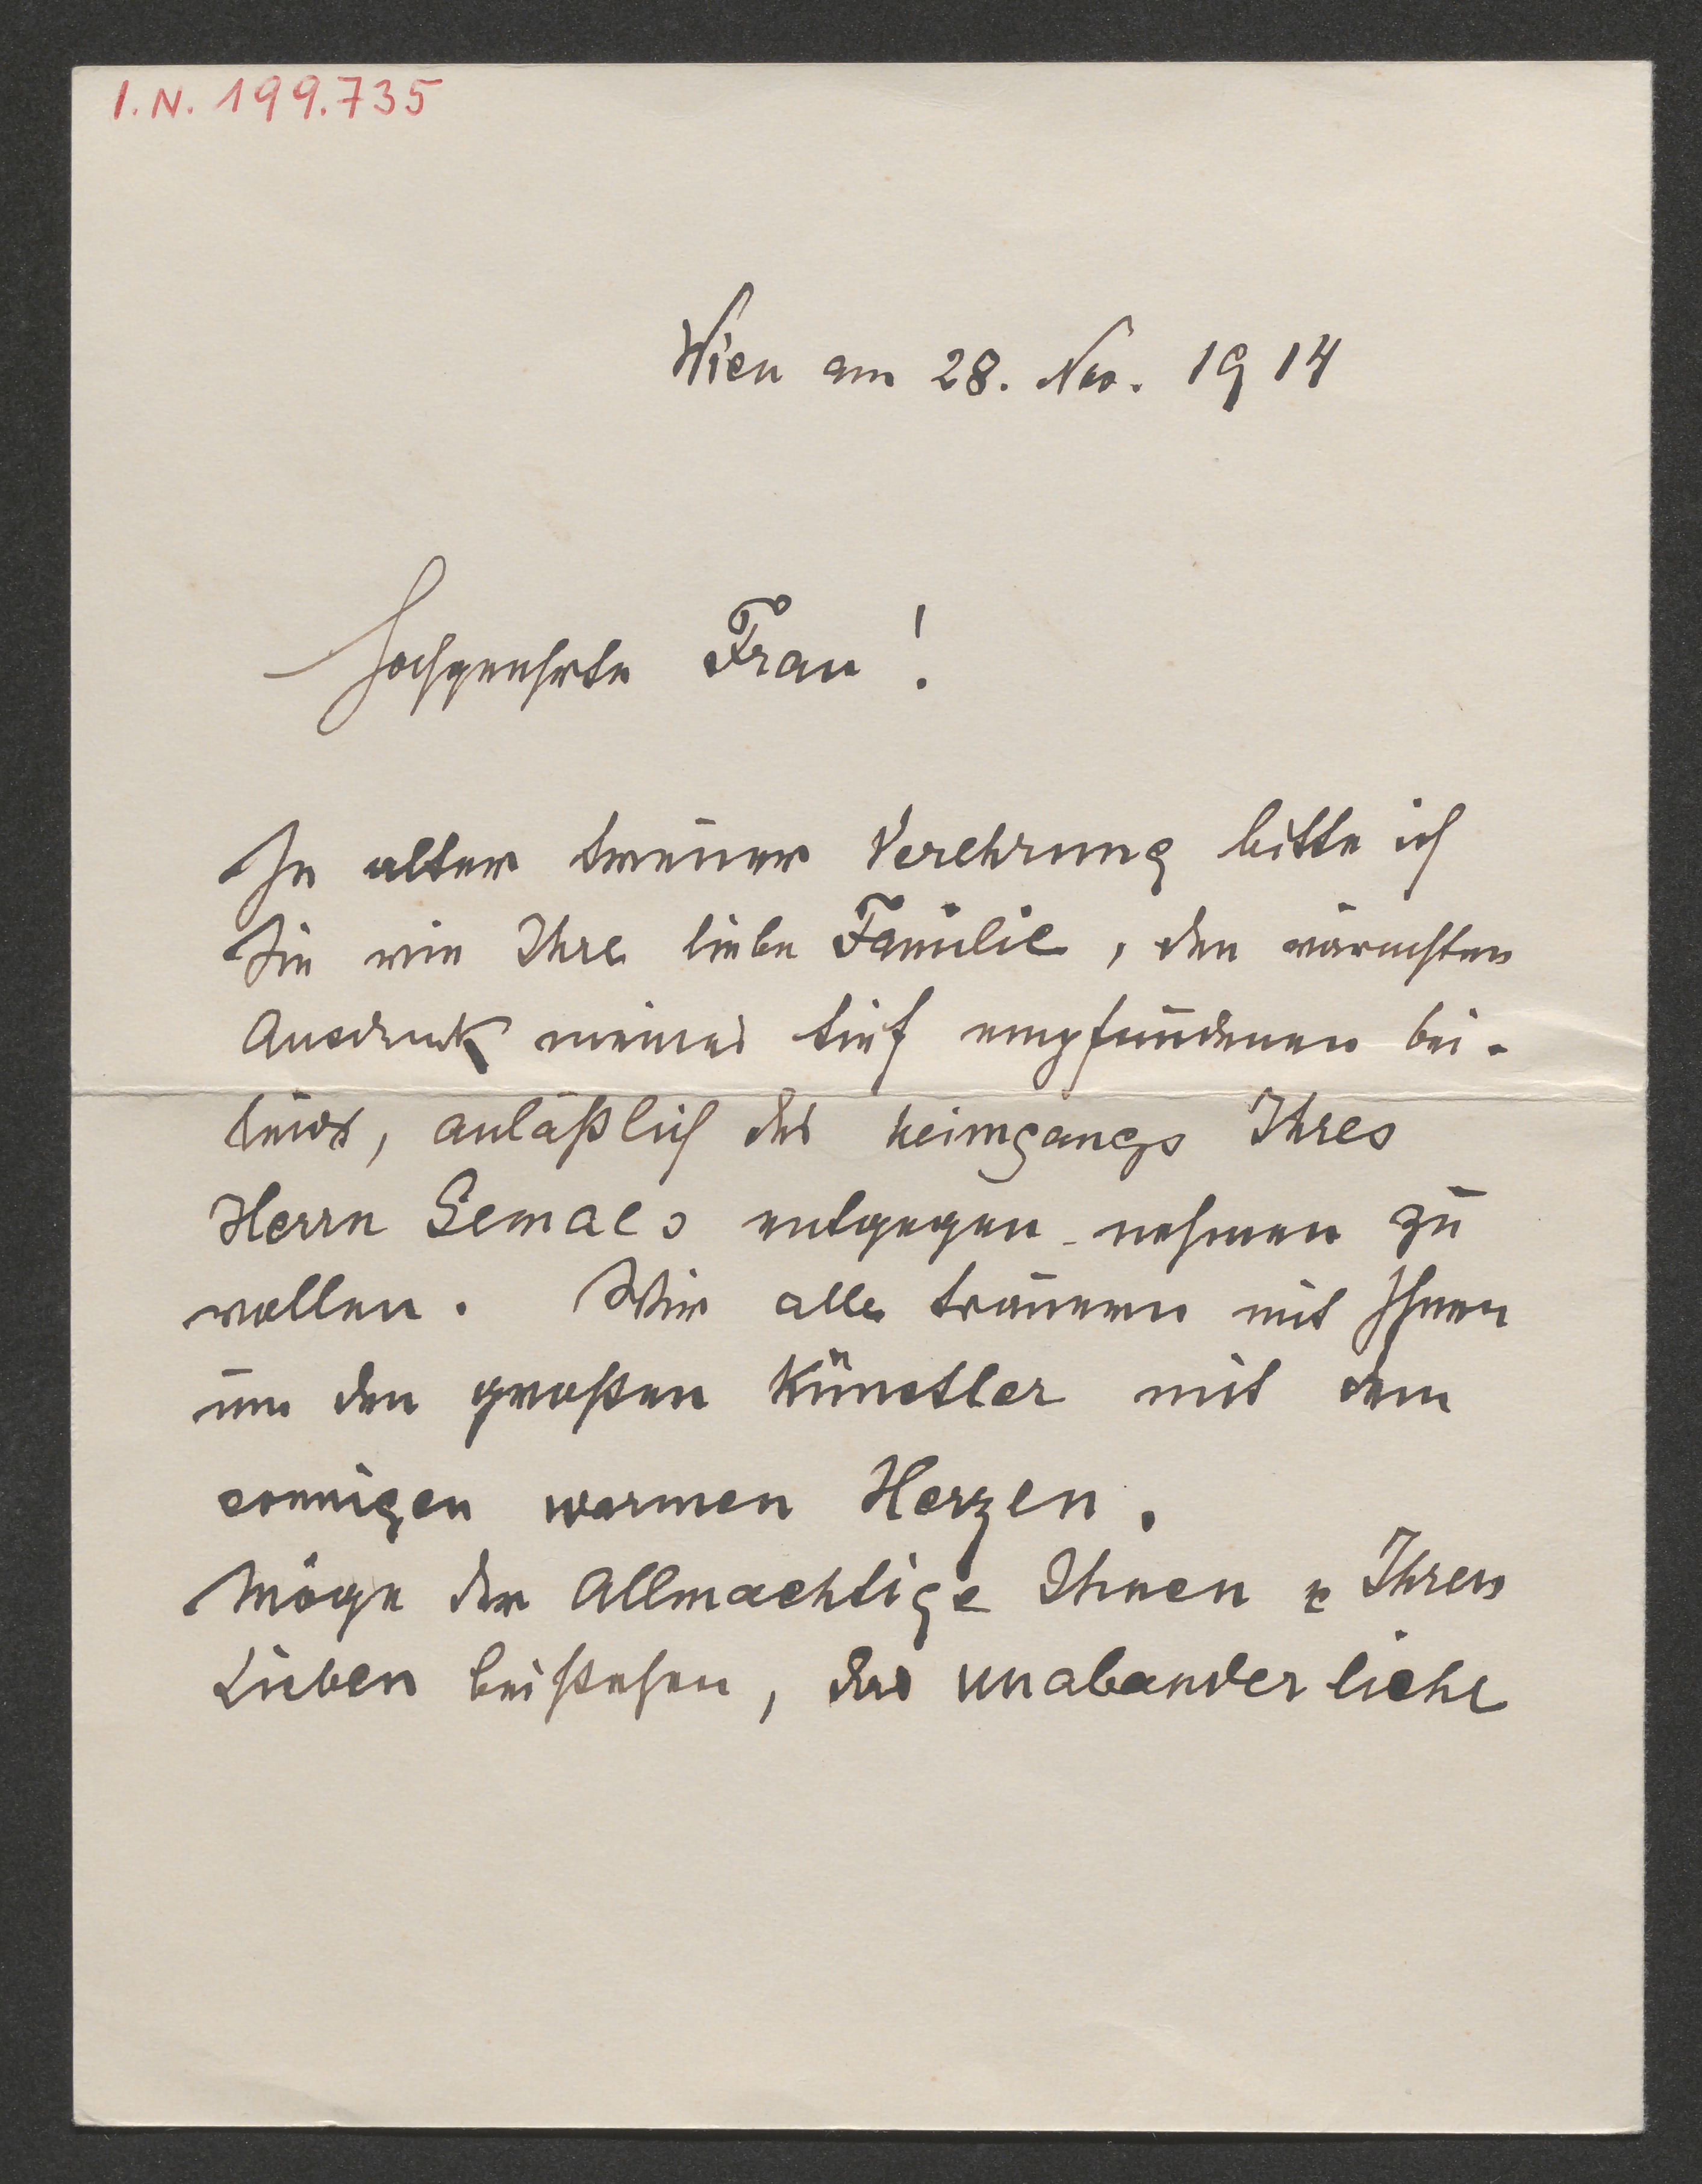 I.N. 199.735
Wien am 28. Nov. 1914
Hochgeehrte Frau!
In alter treuer Verehrung bitte ich
Sie wie Ihre liebe Familie, den wärmsten
Ausdruck meines tief empfundenen bei-
leids, anläßlich des heimgangs Ihres
Herrn Gemals entgegen-nehmen zu
wollen. Wir alle trauern mit Ihnen
um den großen Künstler mit dem
sonnigen warmen Herzen.
Möge der Allmachtige Ihnen u Ihren
Lieben beistehen, das unabanderliche